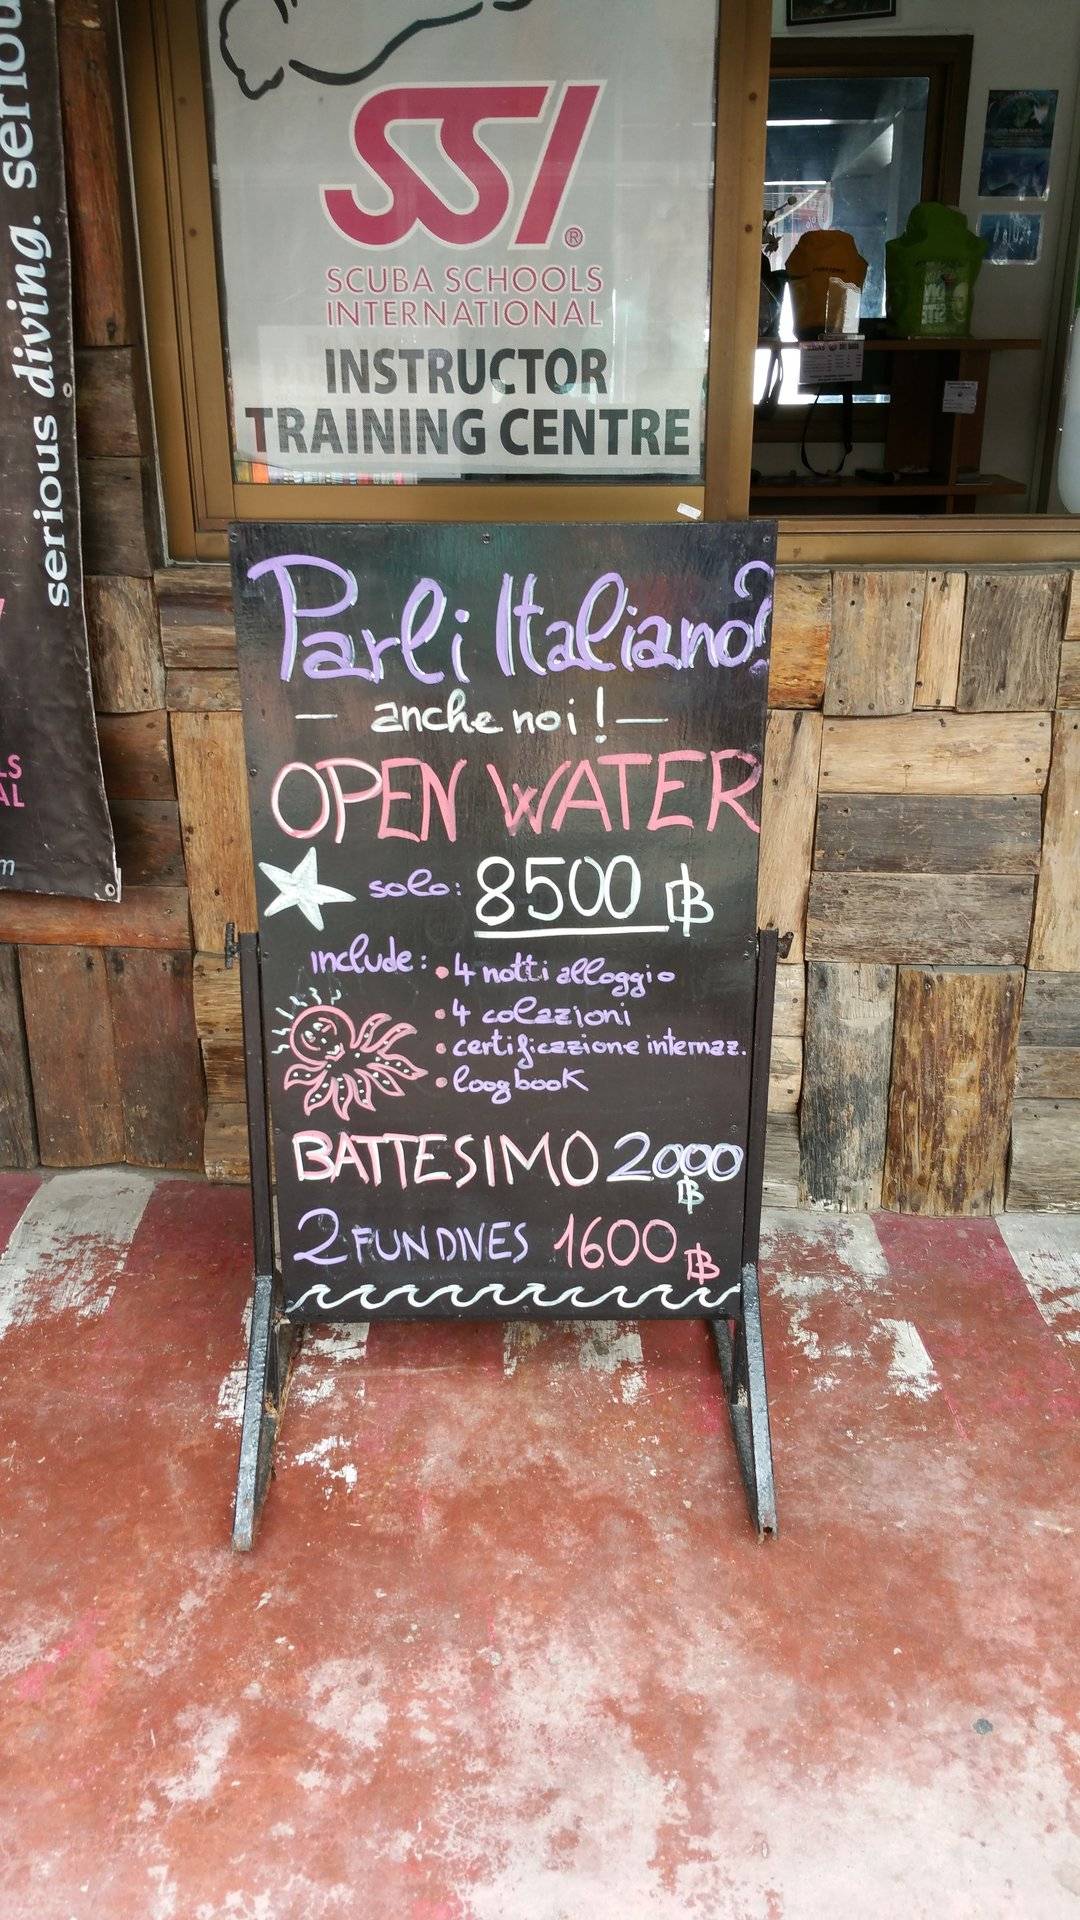 serious diving. seriou
LS
AL
m
SSI®
SCUBA SCHOOLS
INTERNATIONAL
INSTRUCTOR
TRAINING CENTRE
Parli Italiano?
— anche noi! —
OPEN WATER
solo: 8500 ฿
include: • 4 notti alloggio
• 4 colazioni
• certificazione internaz.
• loogbook
BATTESIMO 2000
฿
2 FUN DIVES 1600 ฿